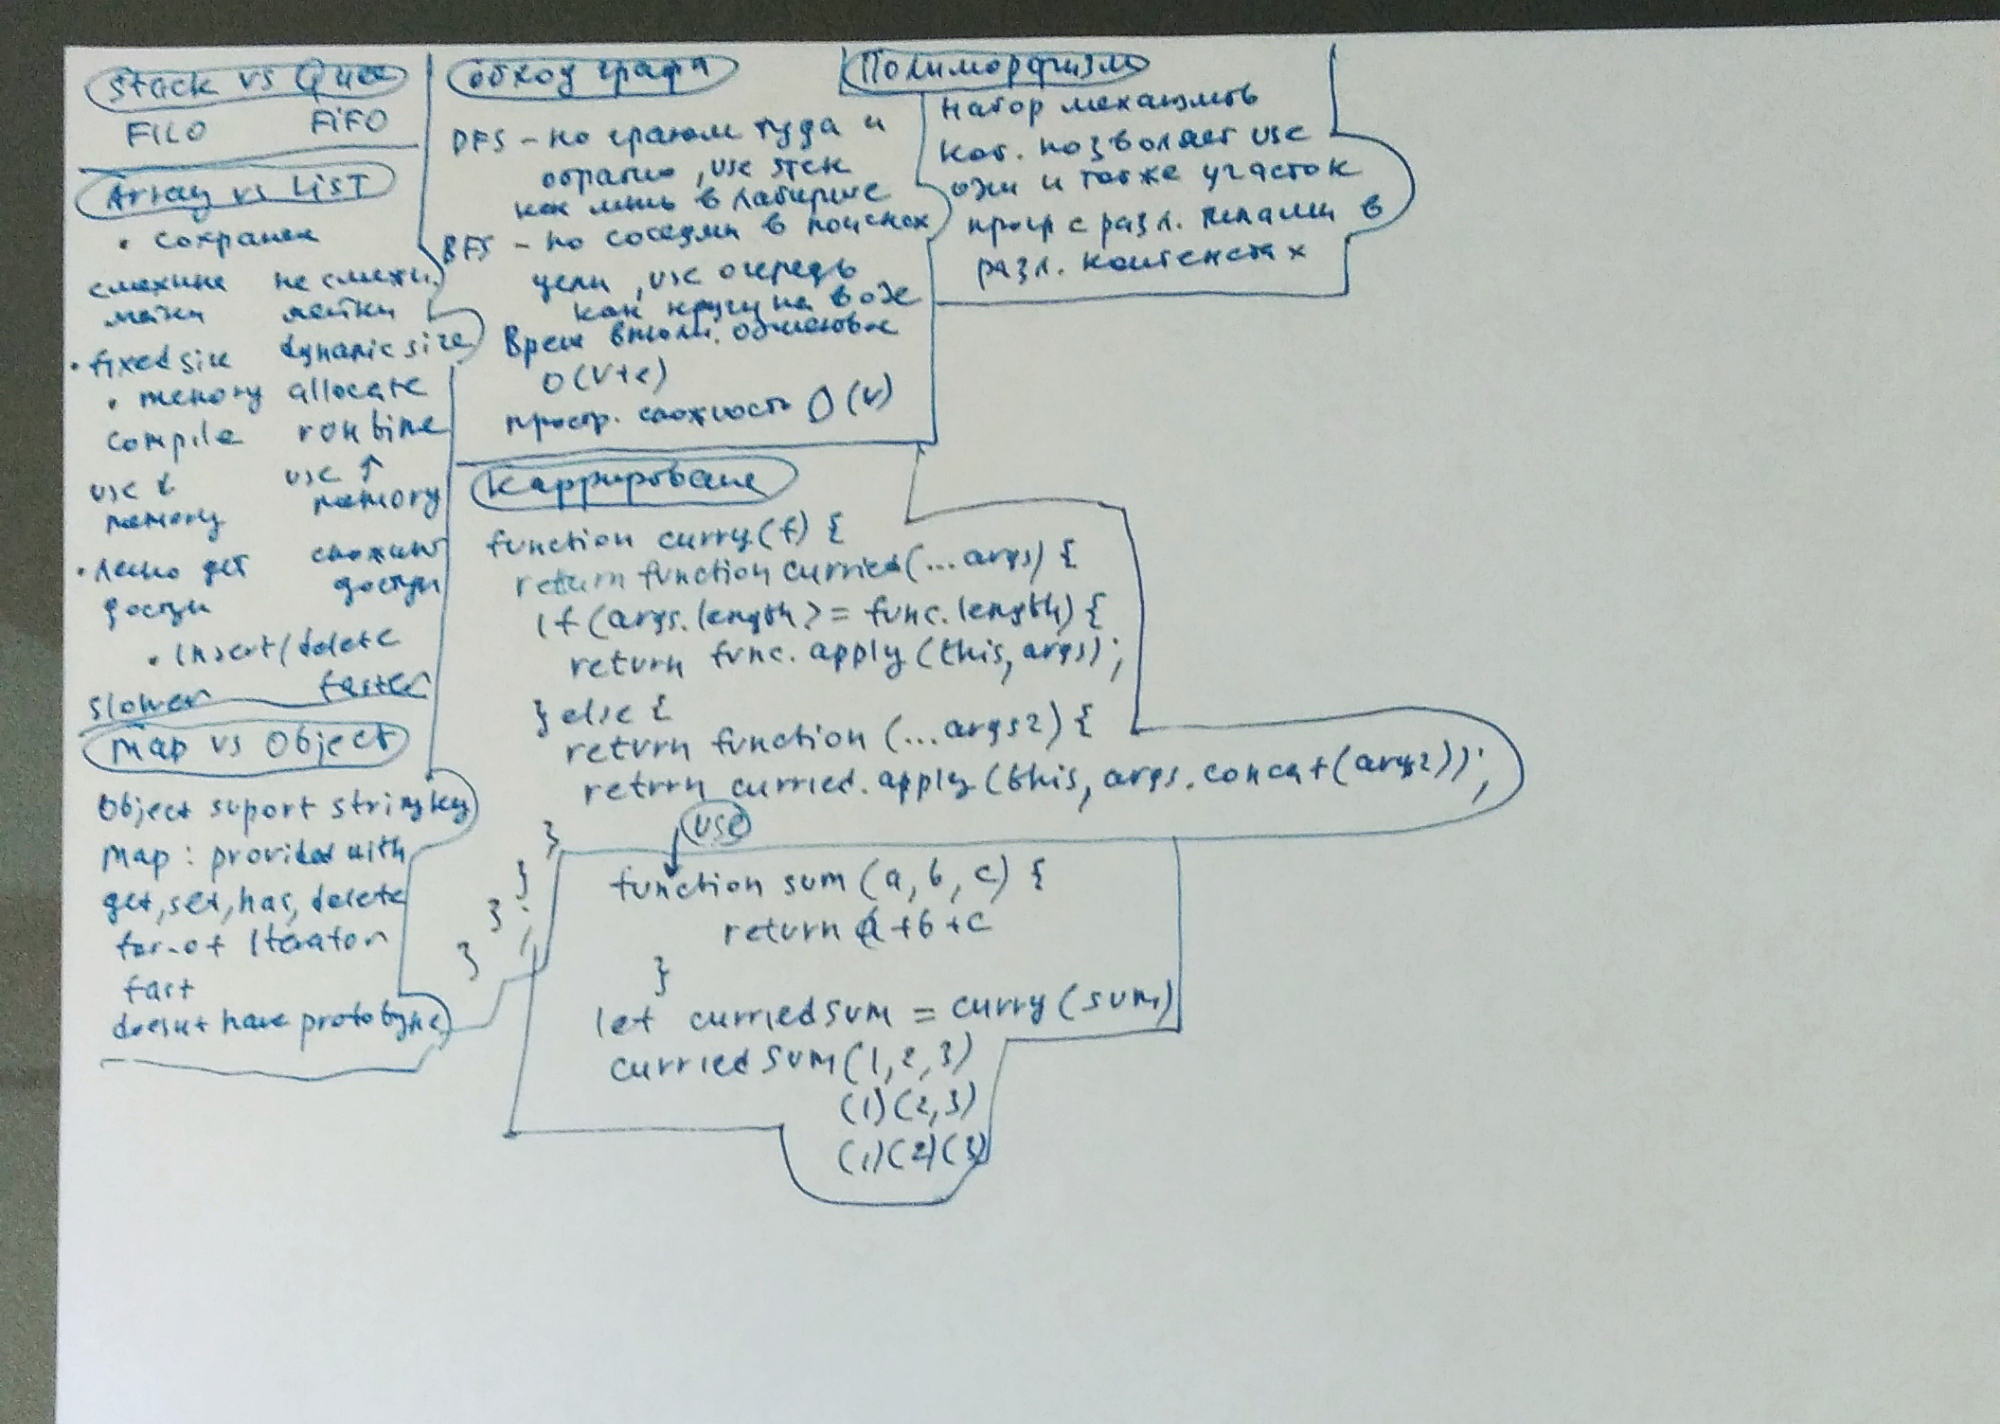 Stack vs Quee
FILO FiFO
Array vs LiST
• сохранен
смежные не смежн.
ячейки ячейки
• fixed size dynamic size
• memory allocate
compile runtime
use ↓ use ↑
memory memory
• легко get сложный
доступ доступ
• insert/delete
slower faster
map vs Object
Object suport string key
map : provided with
get, set, has, delete
for-of Iterator
fast
doesnt have prototype
обход графа
DFS - по граням туда и
обратно, use стек
как мышь в лабиринте
BFS - по соседям в поисках
цели, use очередь
как круги на воде
Время выполн. одинаковое
O(V+e)
простр. сложность O(v)
Полиморфизм
набор механизмов
кот. позволяет use
один и тот же участок
прогр с разл. типами в
разл. контекстах
Каррирование
function curry(f) {
return function curried(...args) {
if (args.length >= func.length) {
return func.apply(this, args);
} else {
return function (...args2) {
return curried.apply(this, args.concat(args2));
}
}
};
}
use
function sum(a, b, c) {
return a+b+c
}
let curriedSum = curry(sum)
curriedSum(1,2,3)
(1)(2,3)
(1)(2)(3)